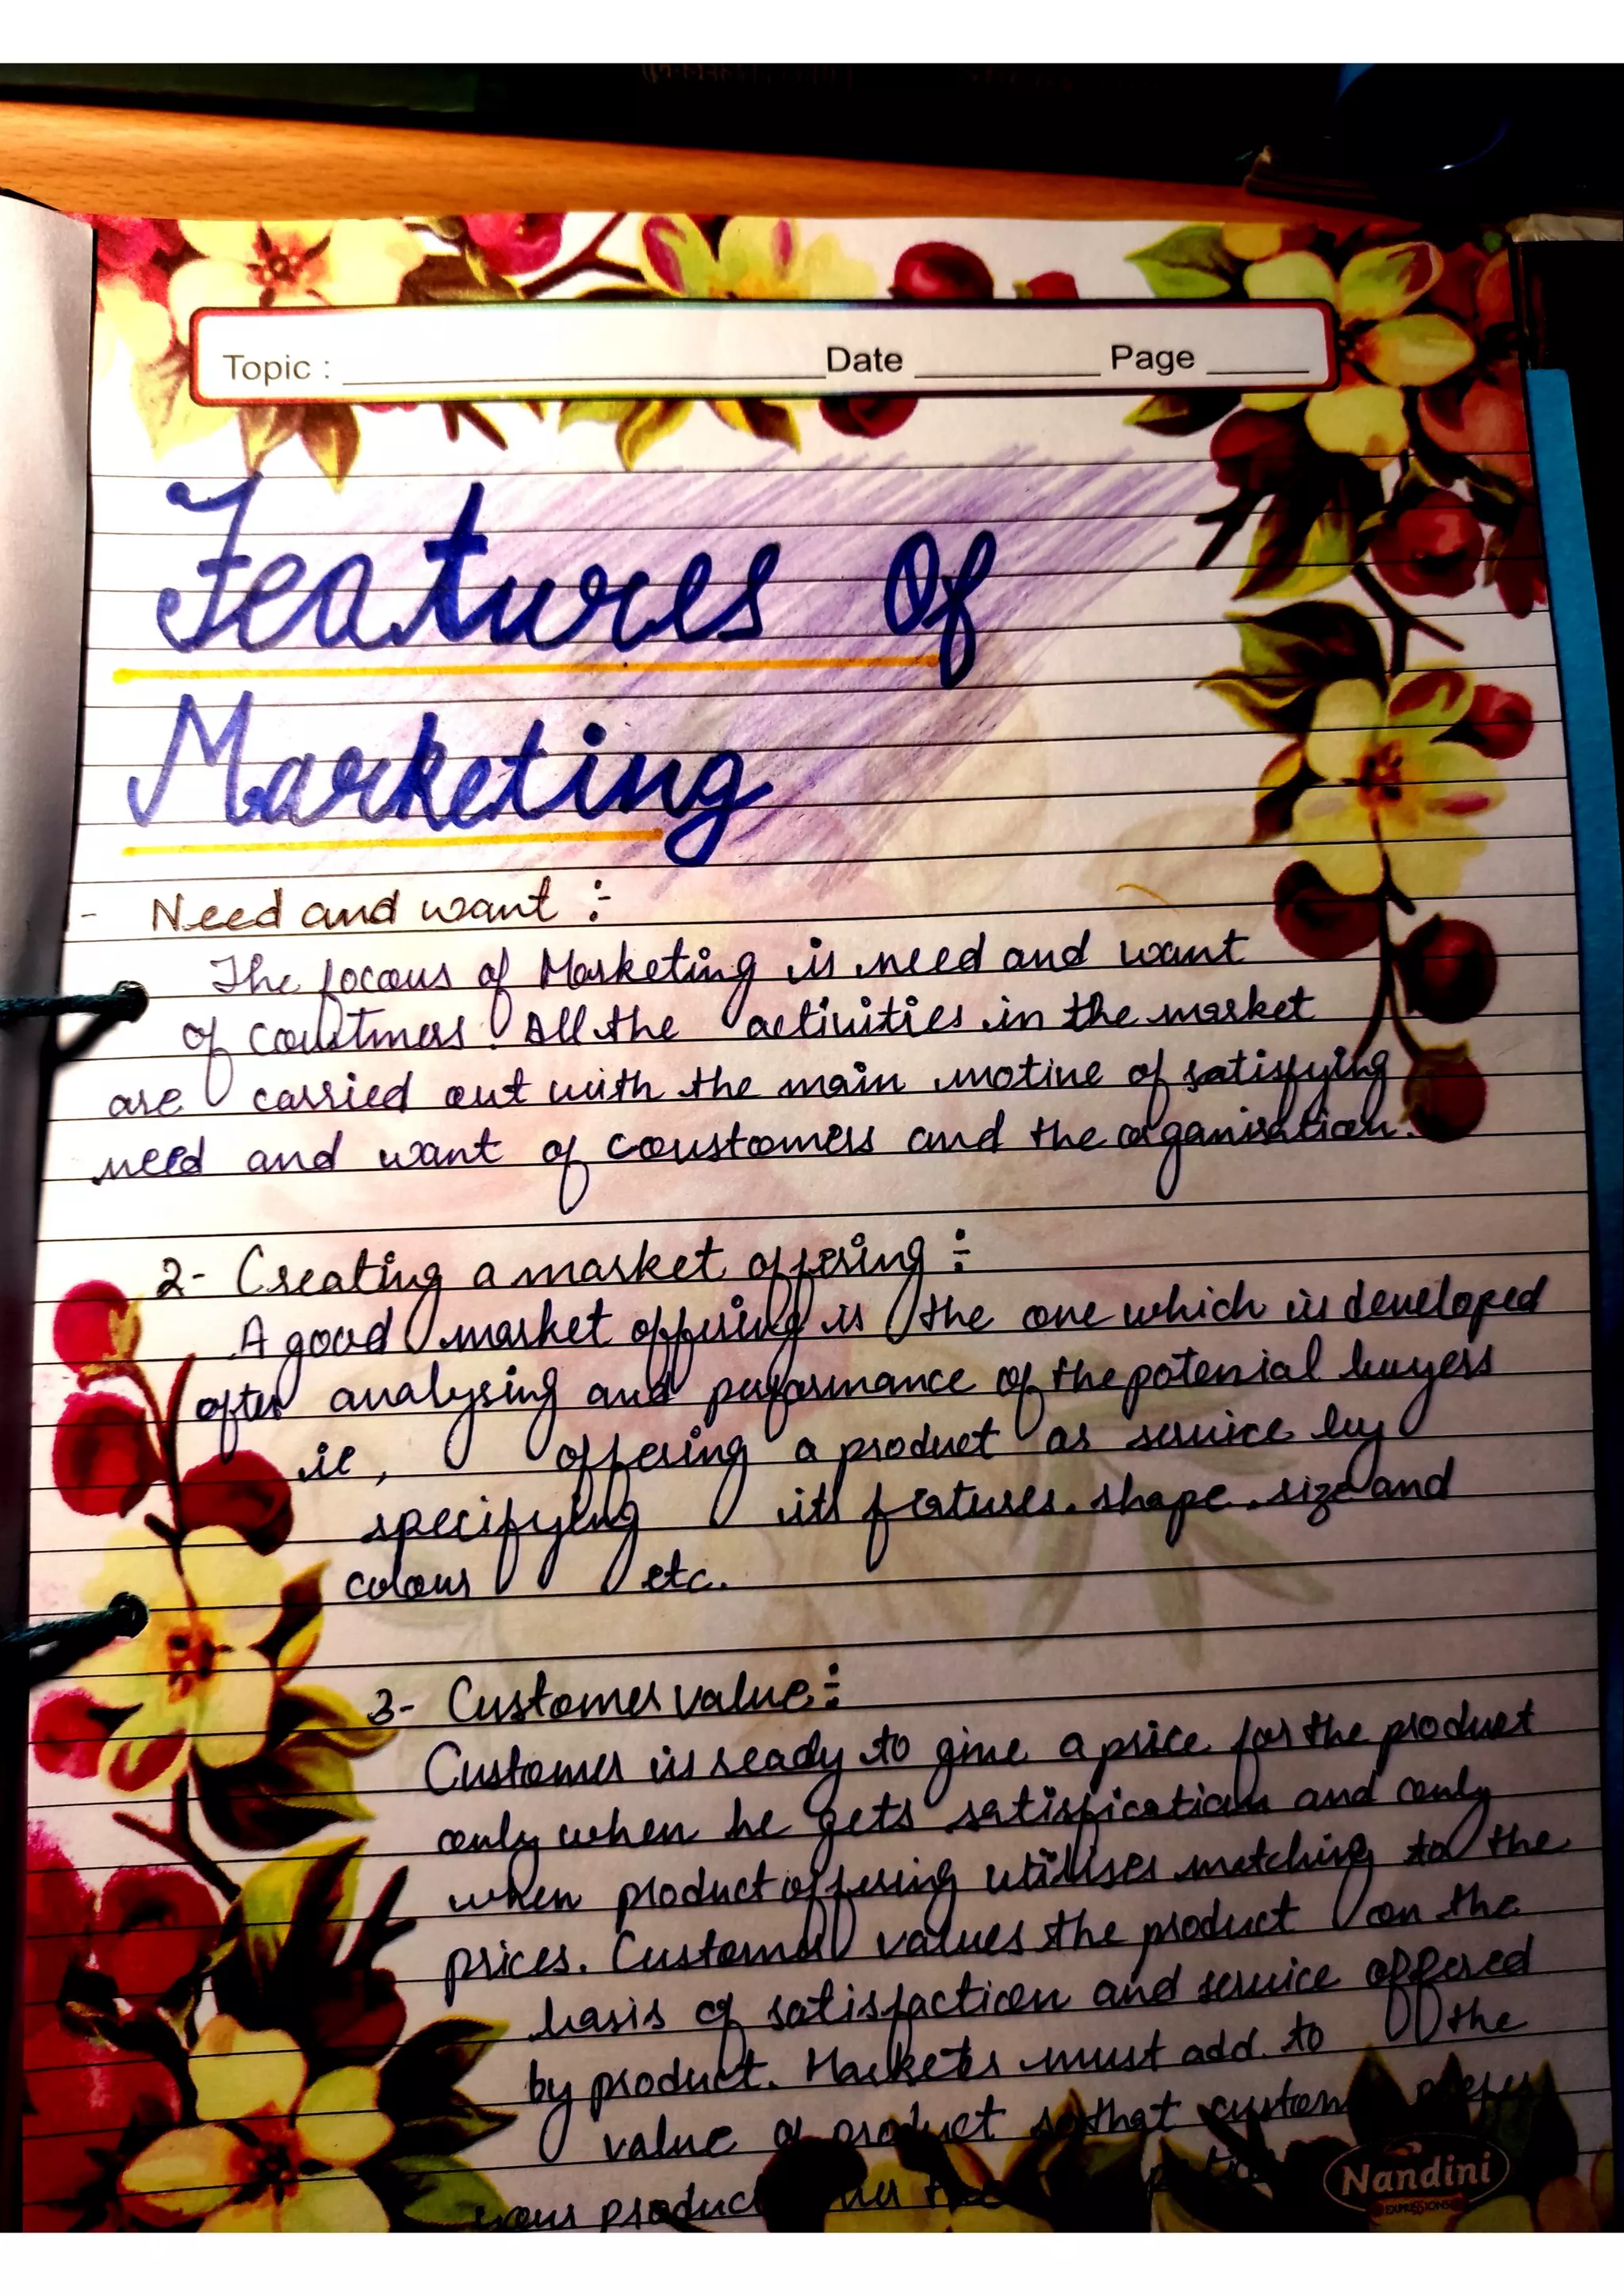 Topic : Date Page
Features Of
Marketing
- Need and want :-
The focous of Marketing is need and want
of coustmers. All the activities in the market
are carried out with the main motive of satisfying
need and want of coustomers and the organisation.
2- Creating a market offering :-
A good market offering is the one which is developed
after analysing and performance of the potenial buyers
ie, offering a product as service by
specifying its features. shape. size and
colour etc.
3- Customer value:-
Customer is ready to give a price for the product
only when he gets satisfication and only
when product offering utilises matching to the
prices. Customer values the product on the
basis of satisfaction and service offered
by product. Markets must add to the
value of product so that custom prefer
your product the
Nandini
EXPRESSIONS